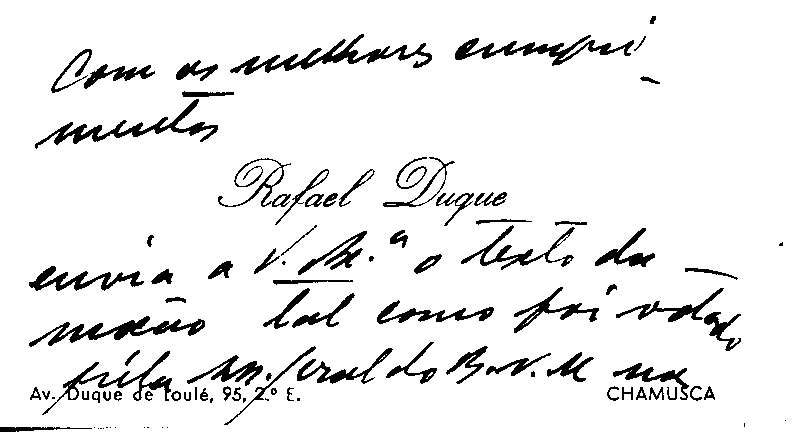 Com os melhores cumpri-
mentos
Rafael Duque
envia a V. Ex.ª o texto da
moção tal como foi votado
pela Ass. Geral do B.N.M na
Av. Duque de Loulé, 95, 2.º E. CHAMUSCA